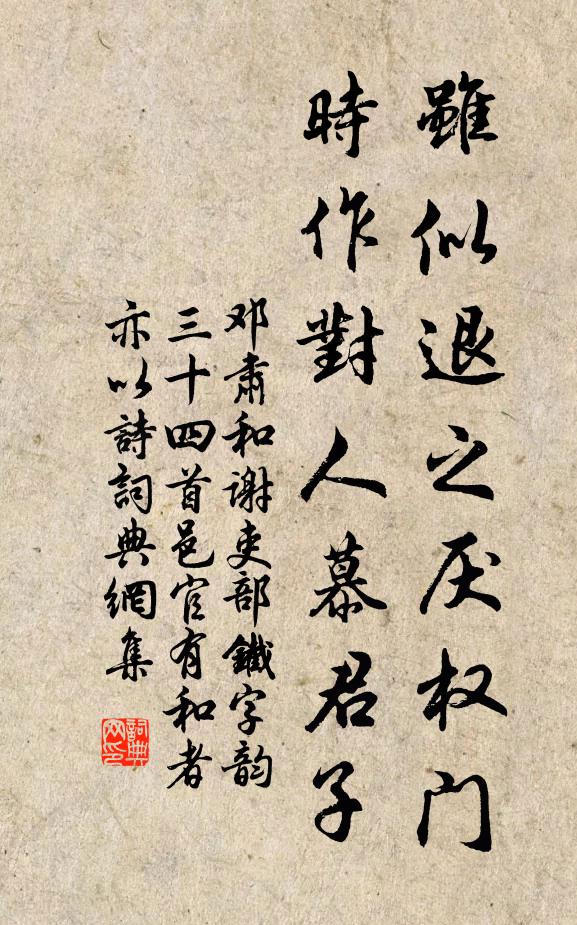 雖似退之厌权门
時作對人慕君子
邓肅和谢吏部鐵字韵
三十四首邑官有和者
亦以詩詞典網集
詞典网印